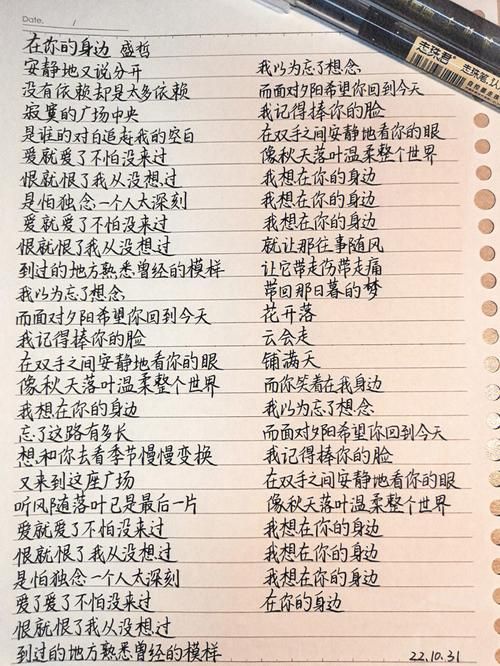 Date. /
在你的身边 盛哲
安静地又说分开
没有依赖却是太多依赖
寂寞的广场中央
是谁的对白追赶我的空白
爱就爱了不怕没来过
恨就恨了我从没想过
是怕独念一个人太深刻
爱就爱了不怕没来过
恨就恨了我从没想过
到过的地方熟悉曾经的模样
我以为忘了想念
而面对夕阳希望你回到今天
我记得捧你的脸
在双手之间安静地看你的眼
像秋天落叶温柔整个世界
我想在你的身边
忘了这路有多长
想和你去看季节慢慢变换
又来到这座广场
听风随落叶已是最后一片
爱就爱了不怕没来过
恨就恨了我从没想过
是怕独念一个人太深刻
爱了爱了不怕没来过
恨就恨了我从没想过
到过的地方熟悉曾经的模样
我以为忘了想念
而面对夕阳希望你回到今天
我记得捧你的脸
在双手之间安静地看你的眼
像秋天落叶温柔整个世界
我想在你的身边
我想在你的身边
就让那往事随风
让它带走伤带走痛
带回那日暮的梦
花开落
云会走
铺满天
而你笑着在我身边
我以为忘了想念
而面对夕阳希望你回到今天
我记得捧你的脸
在双手之间安静地看你的眼
像秋天落叶温柔整个世界
我想在你的身边
我想在你的身边
我想在你的身边
在你的身边
22.10.31